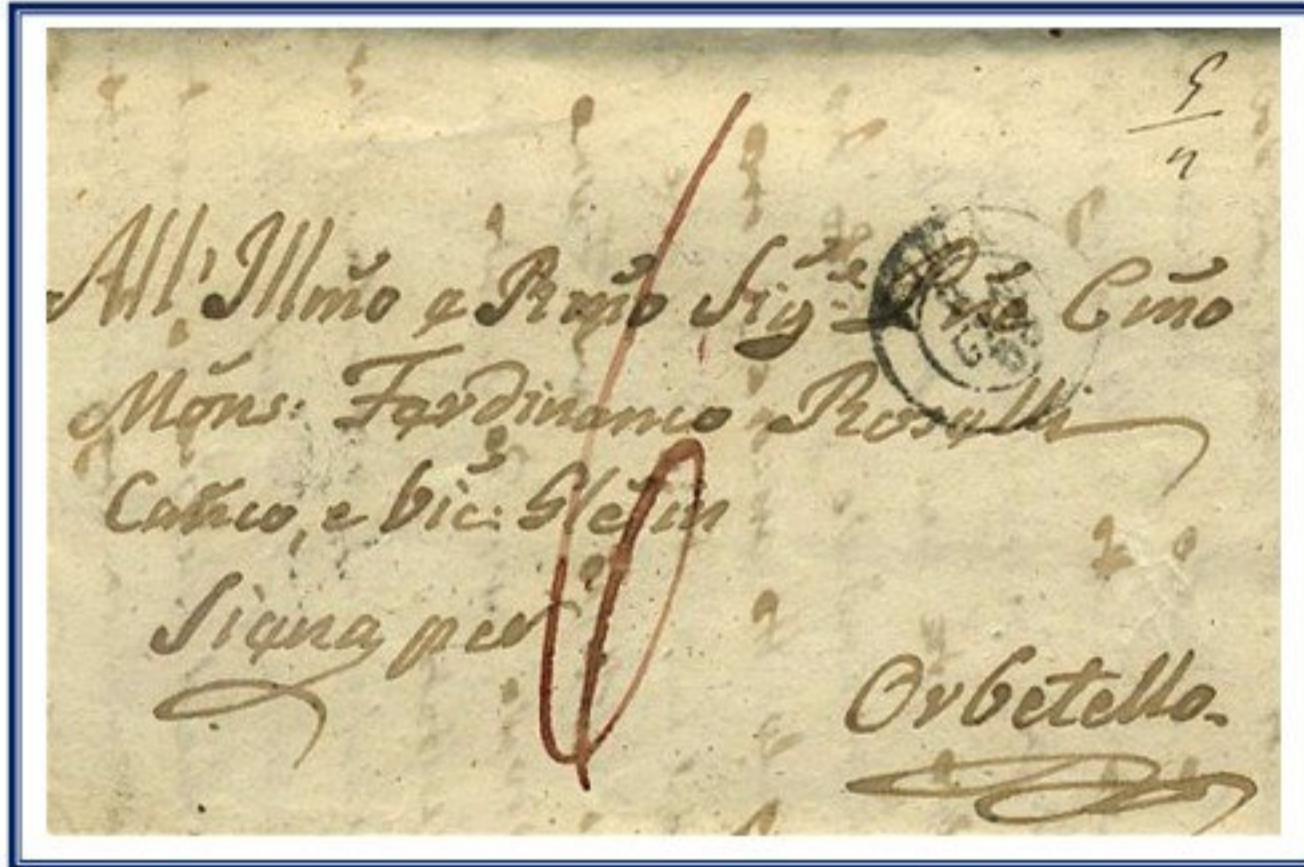 All' Illmo e Rmo Sigre Pne Cmo
Mons: Ferdinanco Roselli
Canco, e Vic: Gle in
Siena per
Orbetello.